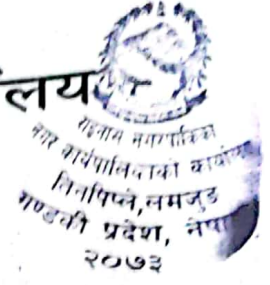 लय
राइनास नगरपालिका
नगर कार्यपालिकाको कार्यालय
तिनपिप्ले, लमजुङ
गण्डकी प्रदेश, नेपाल
२०७३